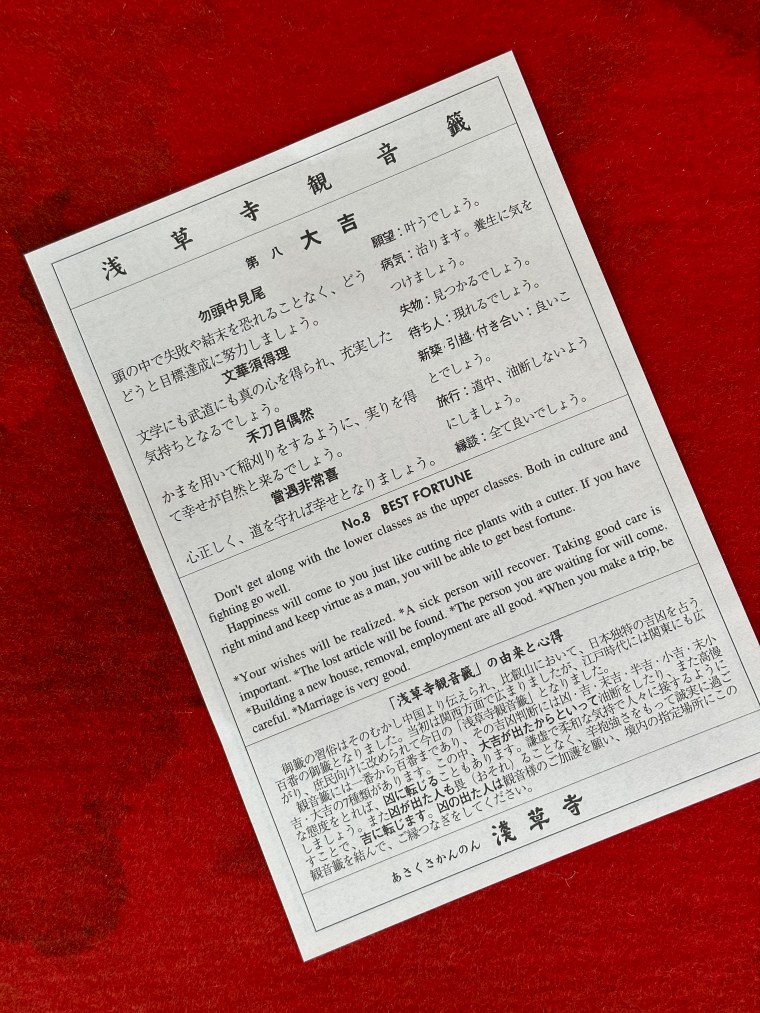 浅草寺観音籤
第八 大吉
勿頭中見尾
頭の中で失敗や結末を恐れることなく、どう
どうと目標達成に努力しましょう。
文華須得理
文学にも武道にも真の心を得られ、充実した
気持ちとなるでしょう。
禾刀自偶然
かまを用いて稲刈りをするように、実りを得
て幸せが自然と来るでしょう。
當遇非常喜
心正しく、道を守れば幸せとなりましょう。
願望：叶うでしょう。
病気：治ります。養生に気を
つけましょう。
失物：見つかるでしょう。
待ち人：現れるでしょう。
新築・引越・付き合い：良いこ
とでしょう。
旅行：道中、油断しないよう
にしましょう。
縁談：全て良いでしょう。
No.8 BEST FORTUNE
Don't get along with the lower classes as the upper classes. Both in culture and
fighting go well.
Happiness will come to you just like cutting rice plants with a cutter. If you have
right mind and keep virtue as a man, you will be able to get best fortune.
*Your wishes will be realized. *A sick person will recover. Taking good care is
important. *The lost article will be found. *The person you are waiting for will come.
*Building a new house, removal, employment are all good. *When you make a trip, be
careful. *Marriage is very good.
「浅草寺観音籤」の由来と心得
御籤の習俗はそのむかし中国より伝えられ、比叡山において、日本独特の吉凶を占う
百番の御籤となりました。当初は関西方面で広まりましたが、江戸時代には関東にも広
がり、庶民向けに改められて今日の「浅草寺観音籤」となりました。
観音籤には一番から百番まであり、その吉凶判断には凶・吉・末吉・半吉・小吉・末小
吉・大吉の7種類があります。この中、大吉が出たからといって油断をしたり、また高慢
な態度をとれば、凶に転じることもあります。謙虚で柔和な気持で人々に接するように
しましょう。また凶が出た人も畏（おそれ）ることなく、辛抱強さをもって誠実に過ご
すことで、吉に転じます。凶の出た人は観音様のご加護を願い、境内の指定場所にこの
観音籤を結んで、ご縁つなぎをしてください。
あさくさかんのん 淺草寺